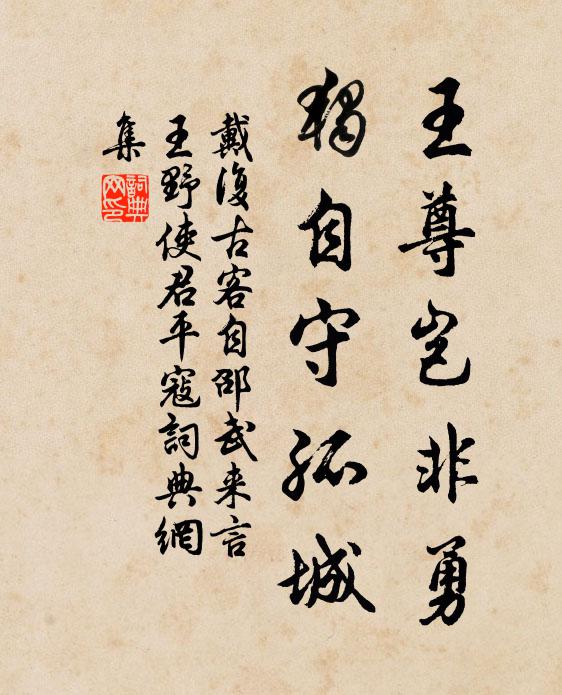 王尊豈非勇
獨自守孤城
戴復古客自邵武来言
王野使君平寇詞典網
集
詞典
网印